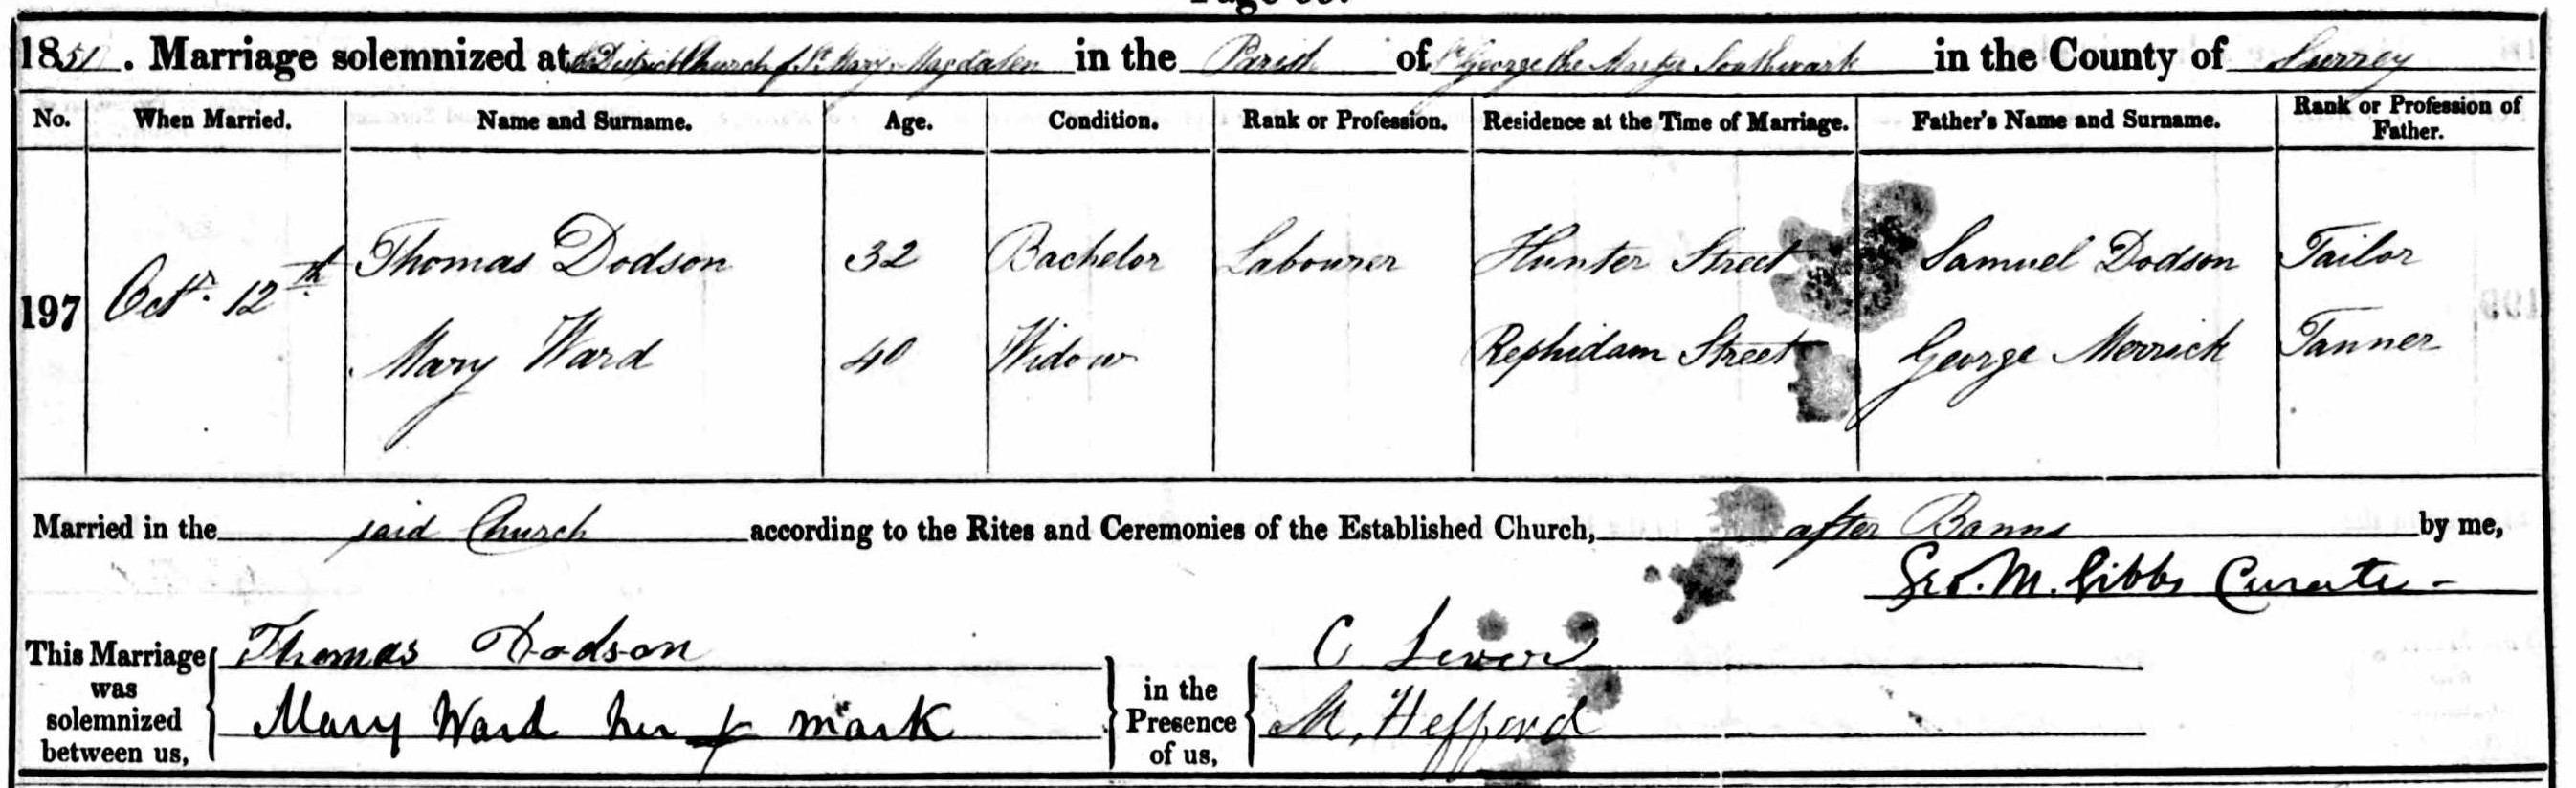 1851. Marriage solemnized at District Church of St. Mary Magdalen in the Parish of St George the Martyr Southwark in the County of Surrey
No. When Married. Name and Surname. Age. Condition. Rank or Profession. Residence at the Time of Marriage. Father's Name and Surname. Rank or Profession of Father.
197 Octr. 12th Thomas Dodson 32 Bachelor Labourer Hunter Street Samuel Dodson Tailor
Mary Ward 40 Widow Rephidam Street George Merrick Tanner
Married in the said Church according to the Rites and Ceremonies of the Established Church, after Banns by me,
Geo. M. Gibbs Curate
This Marriage was solemnized between us, Thomas Dodson
Mary Ward her x mark
in the Presence of us, C
M. Hefford